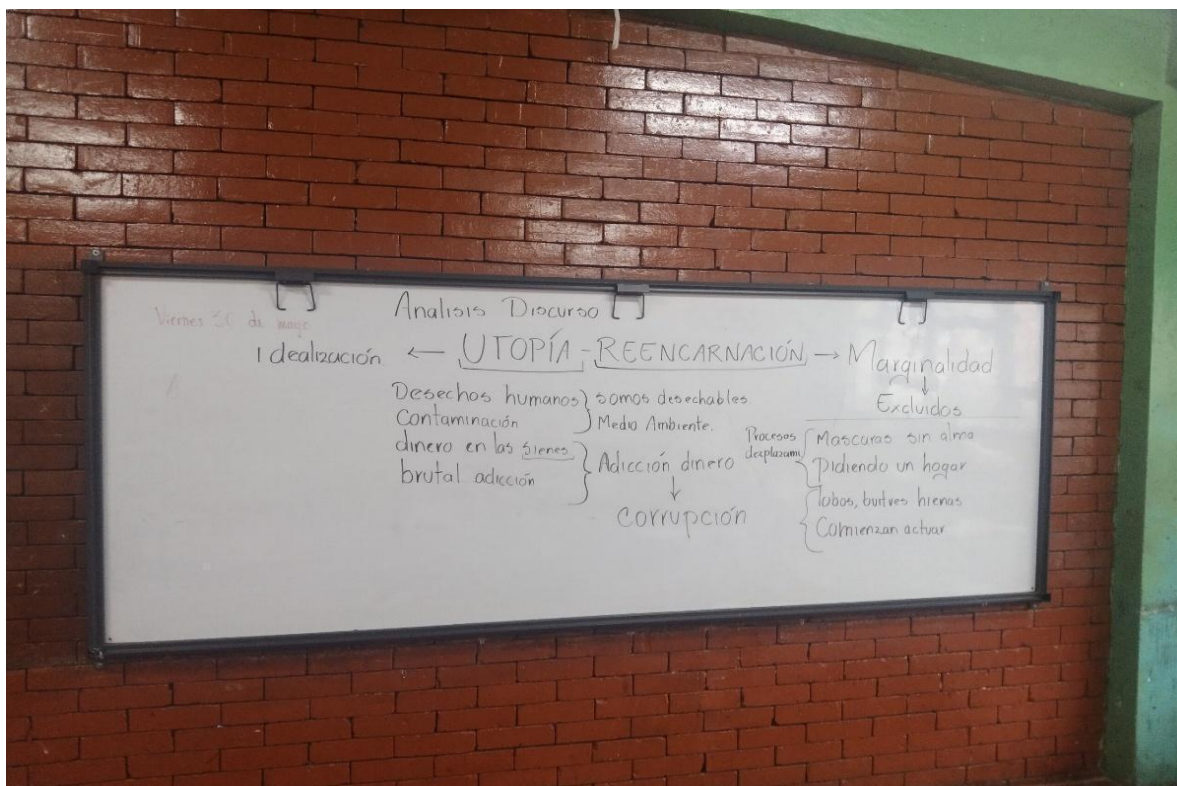 Analisis Discurso
Viernes de mayo
Idealización ← UTOPÍA - REENCARNACIÓN → Marginalidad
↓
Excluidos
Desechos humanos } somos desechables
Contaminación } Medio Ambiente.
dinero en las sienes } Adicción dinero
brutal adicción
↓
Corrupción
Procesos desplazami { Mascaras sin alma
Pidiendo un hogar
{ lobos, buitres hienas
Comienzan actuar